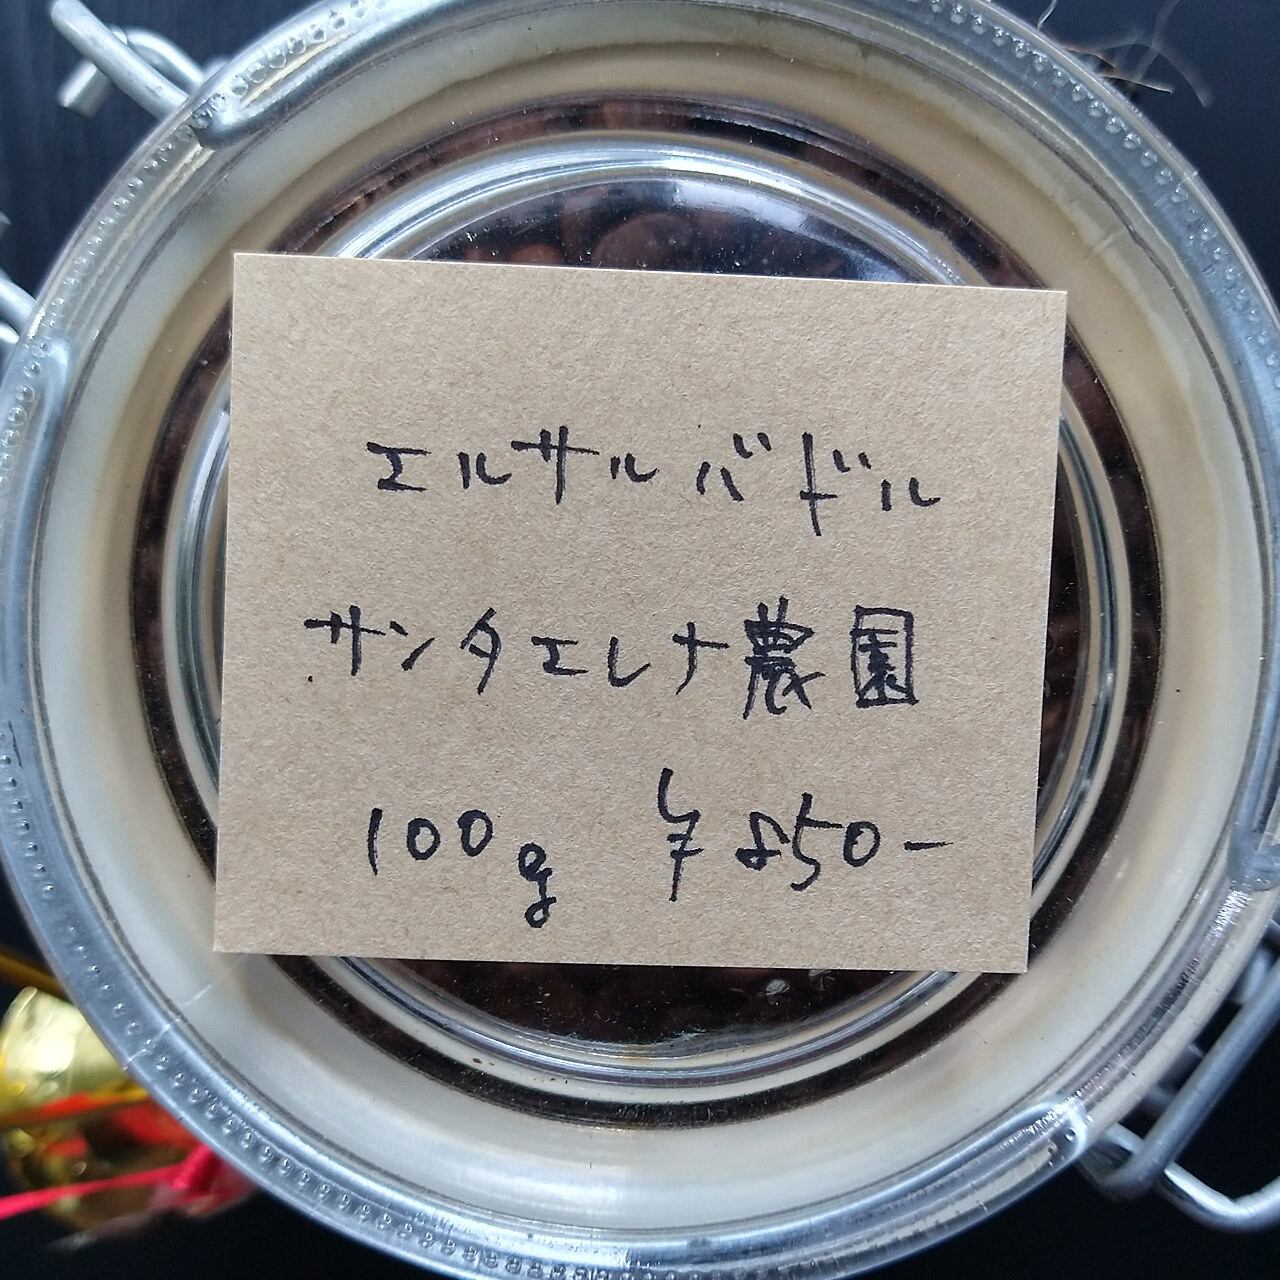 エルサルバドル
サンタエレナ農園
100g ¥850-